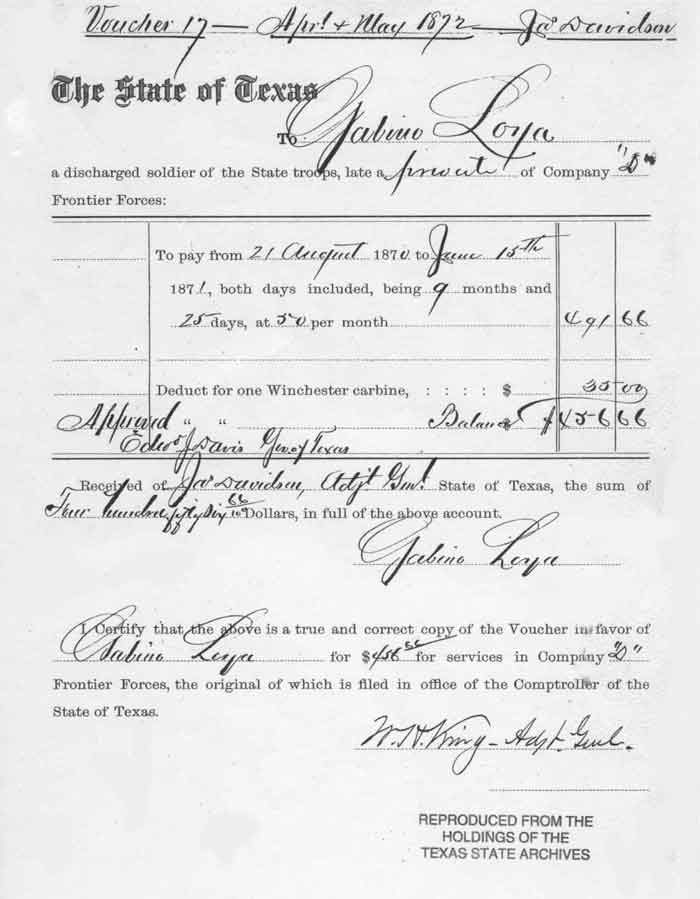 Voucher 17 — Aprl & May 1872 — Jas Davidson
The State of Texas
To Gabino Loya
a discharged soldier of the State troops, late a private of Company "D"
Frontier Forces:
To pay from 21 August 1870 to June 15th
1871, both days included, being 9 months and
25 days, at 50 per month 491 66
Deduct for one Winchester carbine, : : : : $ 35 00
Approved " " Balance $ 456 66
Edmd J Davis Gov of Texas
Received of Jas Davidson, Adjt Genl State of Texas, the sum of
Four hundred fifty six 66/100 Dollars, in full of the above account.
Gabino Loya
I Certify that the above is a true and correct copy of the Voucher in favor of
Gabino Loya for $456 66 for services in Company "D"
Frontier Forces, the original of which is filed in office of the Comptroller of the
State of Texas.
W. H. King - Adjt. Genl.
REPRODUCED FROM THE
HOLDINGS OF THE
TEXAS STATE ARCHIVES